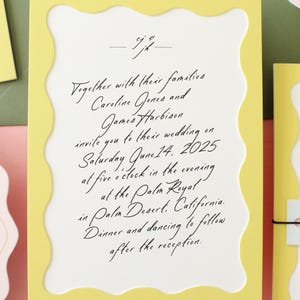 cj &
jh
Together with their families
Caroline Jones and
James Harbison
invite you to their wedding on
Saturday June 14, 2025
at five o'clock in the evening
at the Palm Royal
in Palm Desert, California
Dinner and dancing to follow
after the reception.